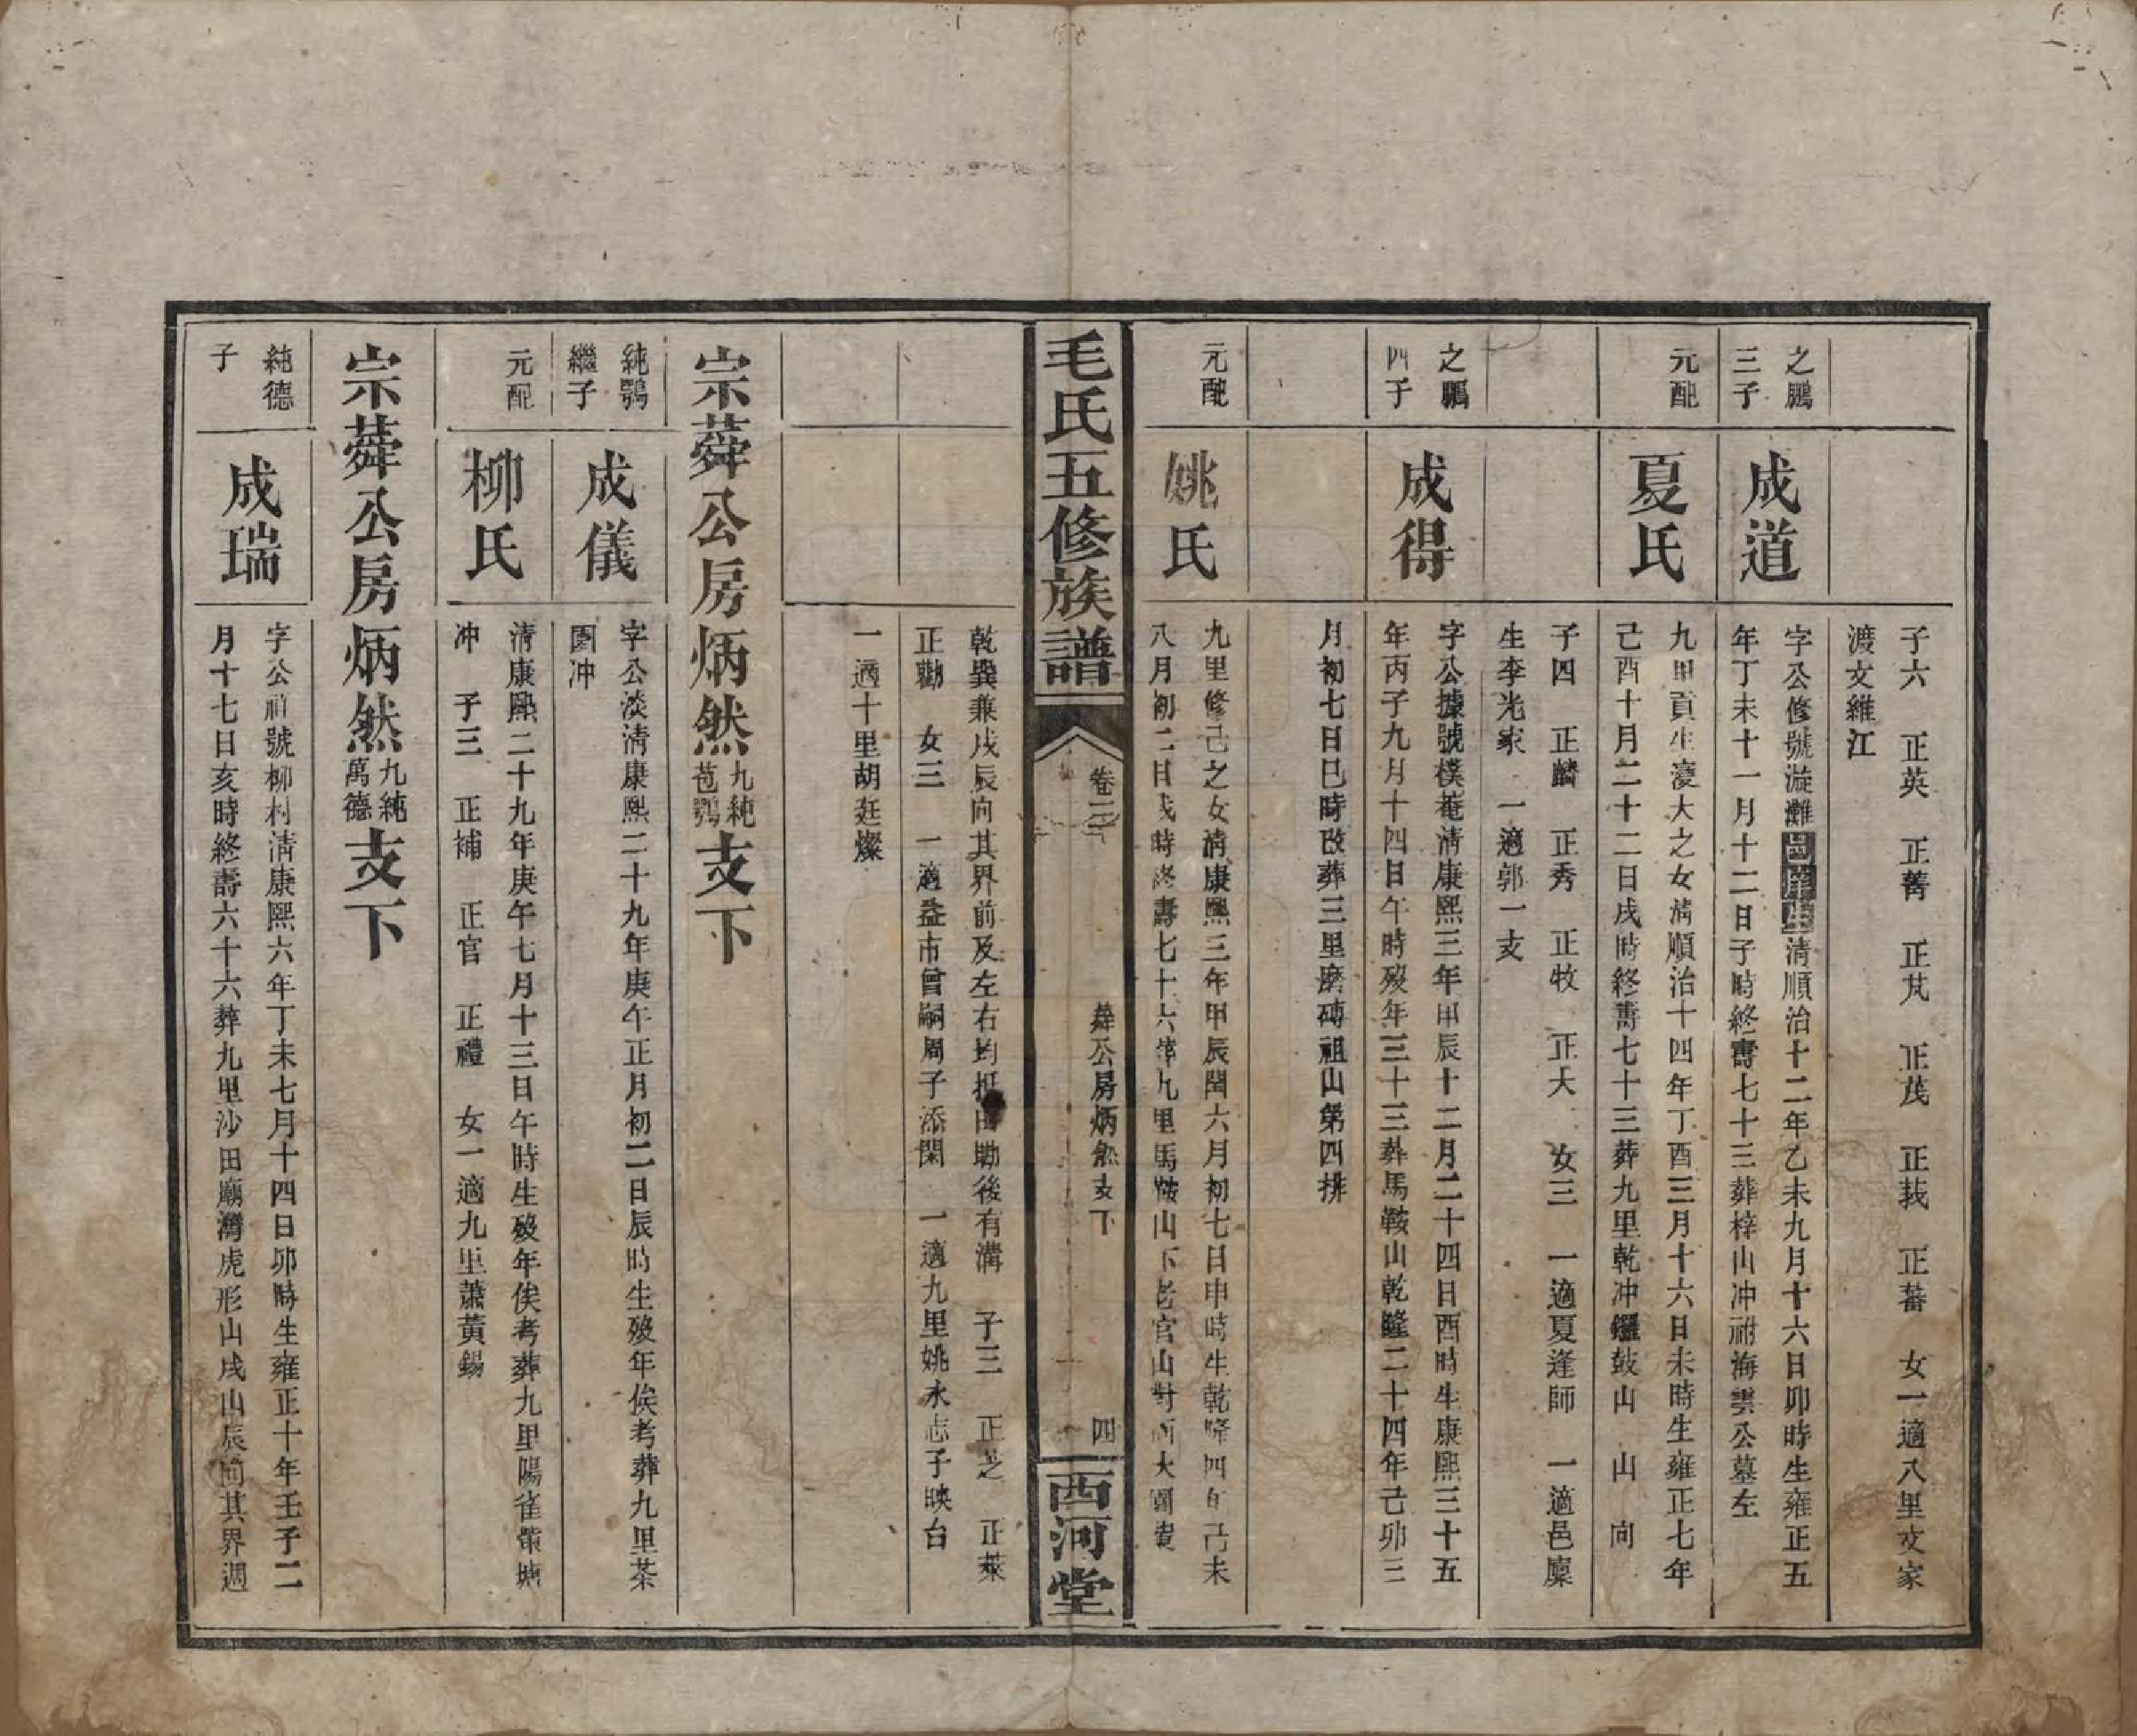 子六　正英　正菁　正芃　正茂　正莪　正蕃　女一適八里文家
渡文維江
之鵬
三子
成道
字公修號漩灘清順治十二年乙未九月十六日卯時生雍正五
年丁未十一月十二日子時終壽七十三葬梓山冲祔海雲公墓左
元配
夏氏
九里貢生凌大之女清順治十四年丁酉三月十六日未時生雍正七年
己酉十月二十二日戌時終壽七十三葬九里乾冲鑼鼓山　山　向
子四　正麟　正秀　正牧　正大　女三　一適夏逢師　一適邑廩
生李光家　一適郭一支
之鵬
四子
成得
字公據號樸菴清康熙三年甲辰十二月二十四日酉時生康熙三十五
年丙子九月十四日午時歿年三十三葬馬鞍山乾隆二十四年己卯三
月初七日巳時改葬三里磨磚祖山第四排
元配
姚氏
九里修己之女清康熙三年甲辰閏六月初七日申時生乾隆四年己未
八月初二日戌時終壽七十六葬九里馬鞍山下老官山對面大園
毛氏五修族譜
卷二
蕣公房炳然支下
四
西河堂
乾巽兼戌辰向其界前及左右均抵田墈後有溝　子三　正芝　正萊
正勷　女三　一適益市曾嗣周子添閑　一適九里姚永志子映台
一適十里胡廷燦
宗蕣公房炳然九苞純鶚支下
純鶚
繼子
成儀
字公淡清康熙二十九年庚午正月初二日辰時生歿年俟考葬九里茶
園冲
元配
柳氏
清康熙二十九年庚午七月十三日午時生歿年俟考葬九里陽雀壩塘
冲　子三　正補　正官　正禮　女一適九里蕭黃錫
宗蕣公房炳然九萬純德支下
純德
子
成瑞
字公祖號柳村清康熙六年丁未七月十四日卯時生雍正十年壬子二
月十七日亥時終壽六十六葬九里沙田廟灣虎形山戌山辰向其界週